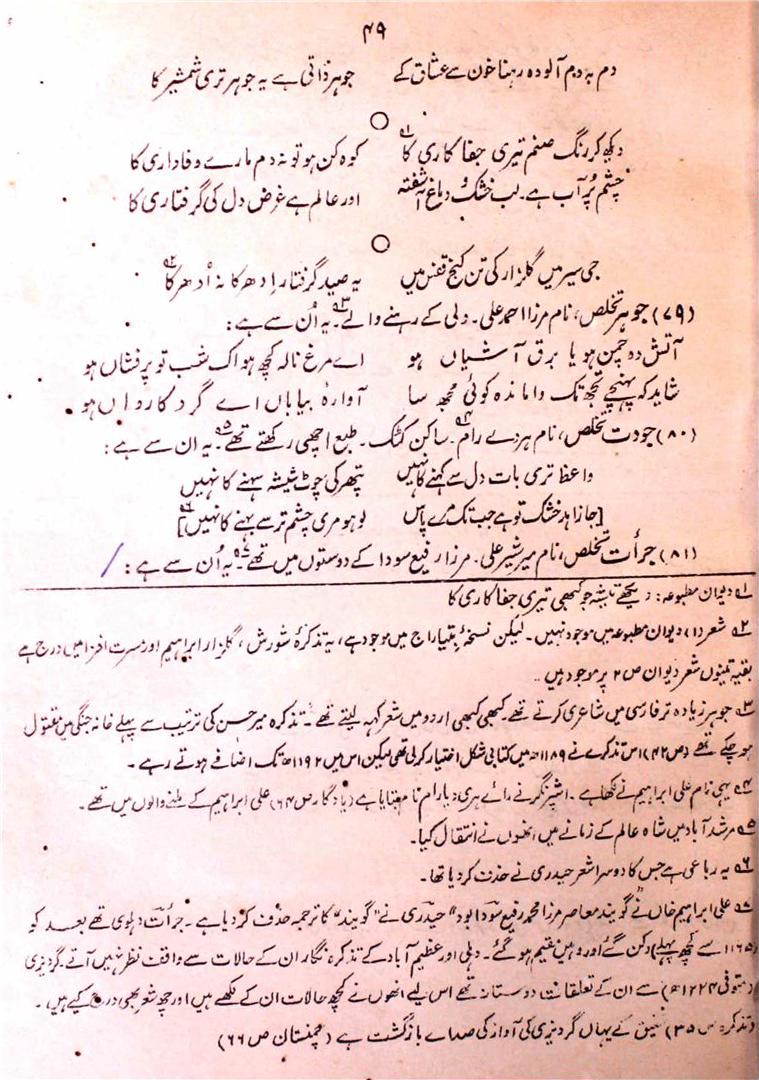 ۴۹
دم بہ دم آلودہ رہنا خون سے عشاق کے جوہر ذاتی ہے یہ جوہر تری شمشیر کا
دیکھ کر رنگ صنم تیری جفا کاری کا کوہ کن ہو تو نہ دم مارے وفاداری کا
چشم پُر آب ہے۔ لب خشک و دماغ آشفتہ اور عالم ہے غرض دل کی گرفتاری کا
جی سیر میں گلزار کی تن کنج قفس میں یہ صید گرفتار اِدھر کا نہ اُدھر کا
(۷۹) جوہر تخلص، نام مرزا احمد علی۔ دلی کے رہنے والے۔ یہ اُن سے ہے :
آتش دہ چمن ہو یا برق آشیاں ہو اے مرغ نالہ کچھ ہو اک شب تو پر فشاں ہو
شاید کہ پہنچے تجھ تک واماندہ کوئی مجھ سا آوارۂ بیاباں اے گرد کارواں ہو
(۸۰) جودت تخلص، نام ہردے رام۔ ساکن کٹک۔ طبع اچھی رکھتے تھے۔ یہ ان سے ہے :
واعظا تری بات دل سے کہنے کا نہیں پتھر کی چوٹ شیشہ سہنے کا نہیں
[جا زاہد خشک تو ہے جب تک مرے پاس لوہو مری چشم تر سے بہنے کا نہیں]
(۸۱) جرأت تخلص، نام میر شیر علی۔ مرزا رفیع سودا کے دوستوں میں تھے۔ یہ اُن سے ہے :
۱ دیوان مطبوعہ : دیکھے تیشہ جو کبھی تیری جفا کاری کا
۲ شعر (۱) دیوان مطبوعہ میں موجود نہیں۔ لیکن نسخۂ بتیا راج میں موجود ہے، یہ تذکرۂ شورش، گلزار ابراہیم اور مسرت افزا میں درج ہے
بقیہ تینوں شعر دیوان ص ۲ پر موجود ہیں ۔۔
۳ جوہر زیادہ تر فارسی میں شاعری کرتے تھے۔ کبھی کبھی اردو میں شعر کہہ لیتے تھے۔ تذکرہ میر حسن کی ترتیب سے پہلے خانہ جنگی میں مقتول
ہو چکے تھے (ص ۴۲) اس تذکرے نے ۱۱۸۹ھ میں کتابی شکل اختیار کرلی تھی لیکن اس میں ۱۱۹۲ھ تک اضافے ہوتے رہے ۔
۴ یہی نام علی ابراہیم نے لکھا ہے ۔ اشپرنگر نے رائے ہری دیا رام نام بتایا ہے (یادگار ص ۶۴) علی ابراہیم کے ملنے والوں میں تھے ۔
۵ مرشد آباد میں شاہ عالم کے زمانے میں انھوں نے انتقال کیا۔
۶ یہ رباعی ہے جس کا دوسرا شعر حیدری نے حذف کر دیا تھا۔
۷ علی ابراہیم خاں نے گویند معاصر مرزا محمد رفیع سودا بود" حیدری نے "گویند" کا ترجمہ حذف کر دیا ہے ۔ جرأت دہلوی تھے بعد کو
(۱۱۶۵ سے کچھ پہلے) دکن گئے اور وہیں مقیم ہو گئے ۔ دہلی اور عظیم آباد کے تذکرہ نگار ان کے حالات سے واقف نظر نہیں آتے۔ گردیزی
(متوفی ۱۲۲۴ھ) سے ان کے تعلقات دوستانہ تھے اس لیے انھوں نے کچھ حالات ان کے لکھے ہیں اور چھ شعر بھی درج کیے ہیں ۔
(تذکرہ ص ۳۵) شفیق کے یہاں گردیزی کی آواز کی صدائے بازگشت ہے (چمنستان ص ۶۶)